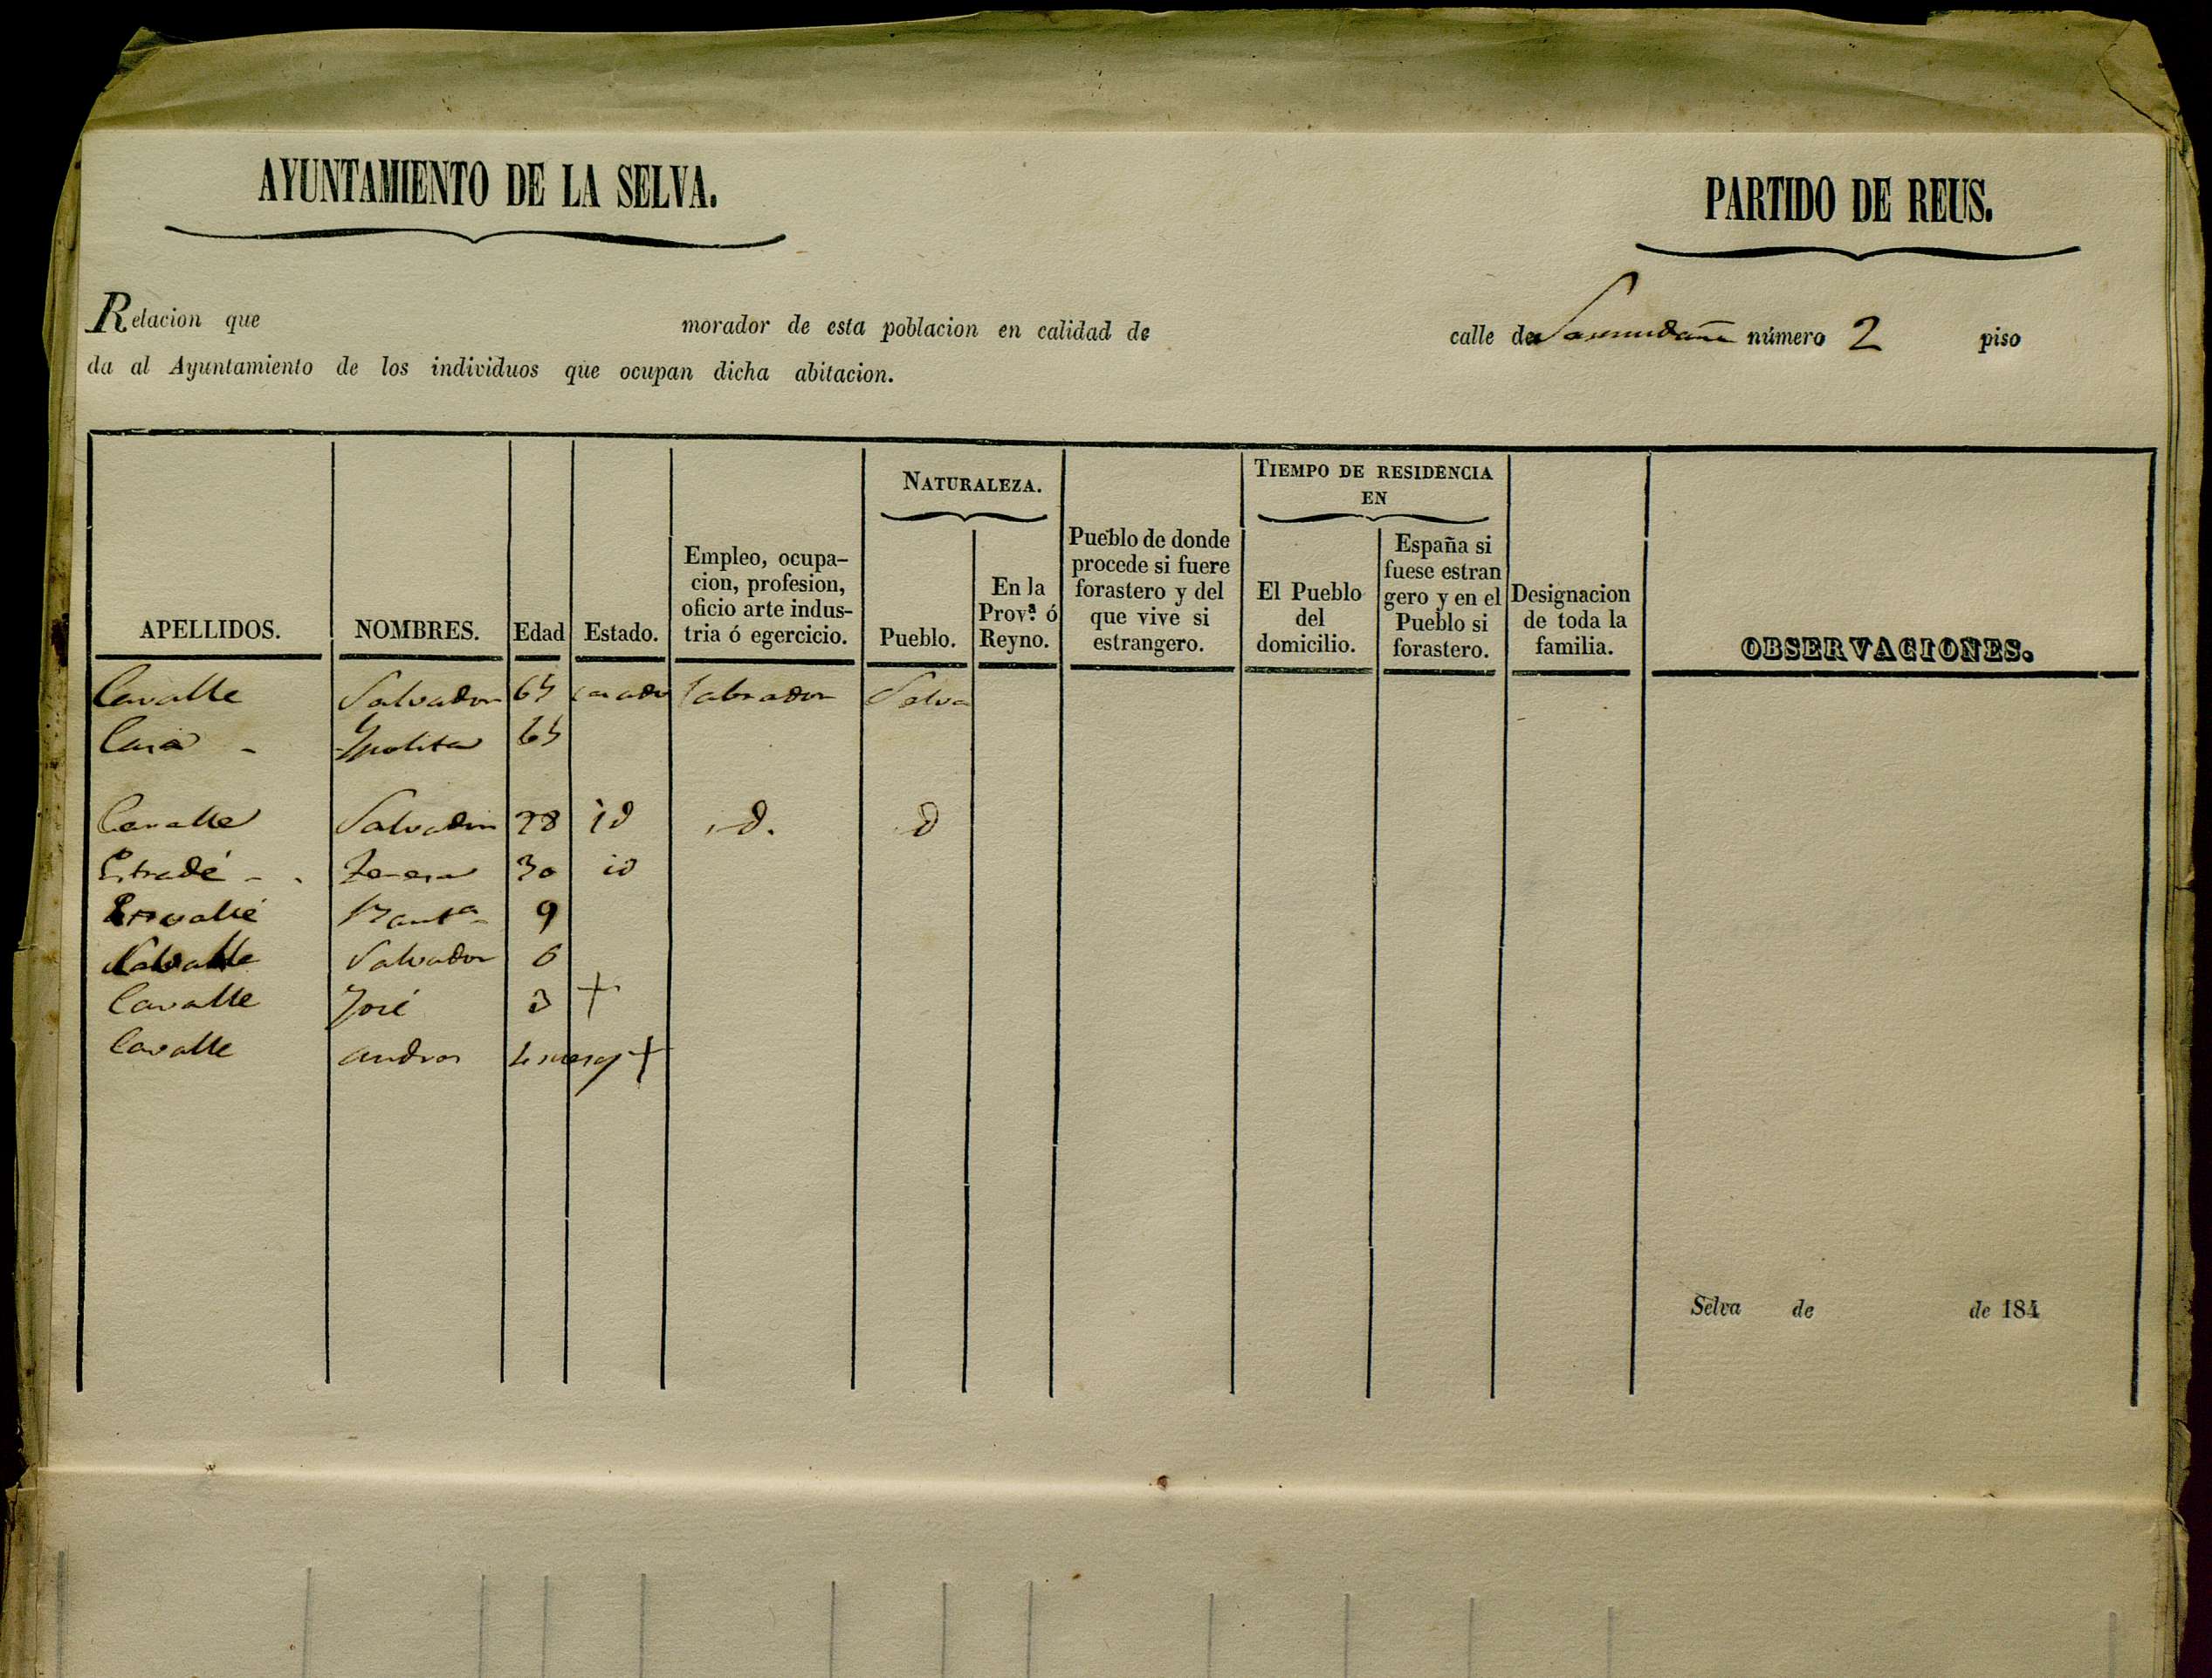 AYUNTAMIENTO DE LA SELVA.
PARTIDO DE REUS.
Relacion que morador de esta poblacion en calidad de calle de número 2 piso
da al Ayuntamiento de los individuos que ocupan dicha abitacion.
NATURALEZA.
TIEMPO DE RESIDENCIA
EN
APELLIDOS.
NOMBRES.
Edad
Estado.
Empleo, ocupa-
cion, profesion,
oficio arte indus-
tria ó egercicio.
Pueblo.
En la
Provª. ó
Reyno.
Pueblo de donde
procede si fuere
forastero y del
que vive si
estrangero.
El Pueblo
del
domicilio.
España si
fuese estran
gero y en el
Pueblo si
forastero.
Designacion
de toda la
familia.
OBSERVACIONES.
Cavalle Salvador 65 casado labrador Selva
Ypolita 65
Cavalle Salvador 28 id id. id
Estradé - - Teresa 30 id
Cavallé 9
Cavalle Salvador 6
Cavalle José 3 +
Cavalle Andres 4 meses +
Selva de de 184